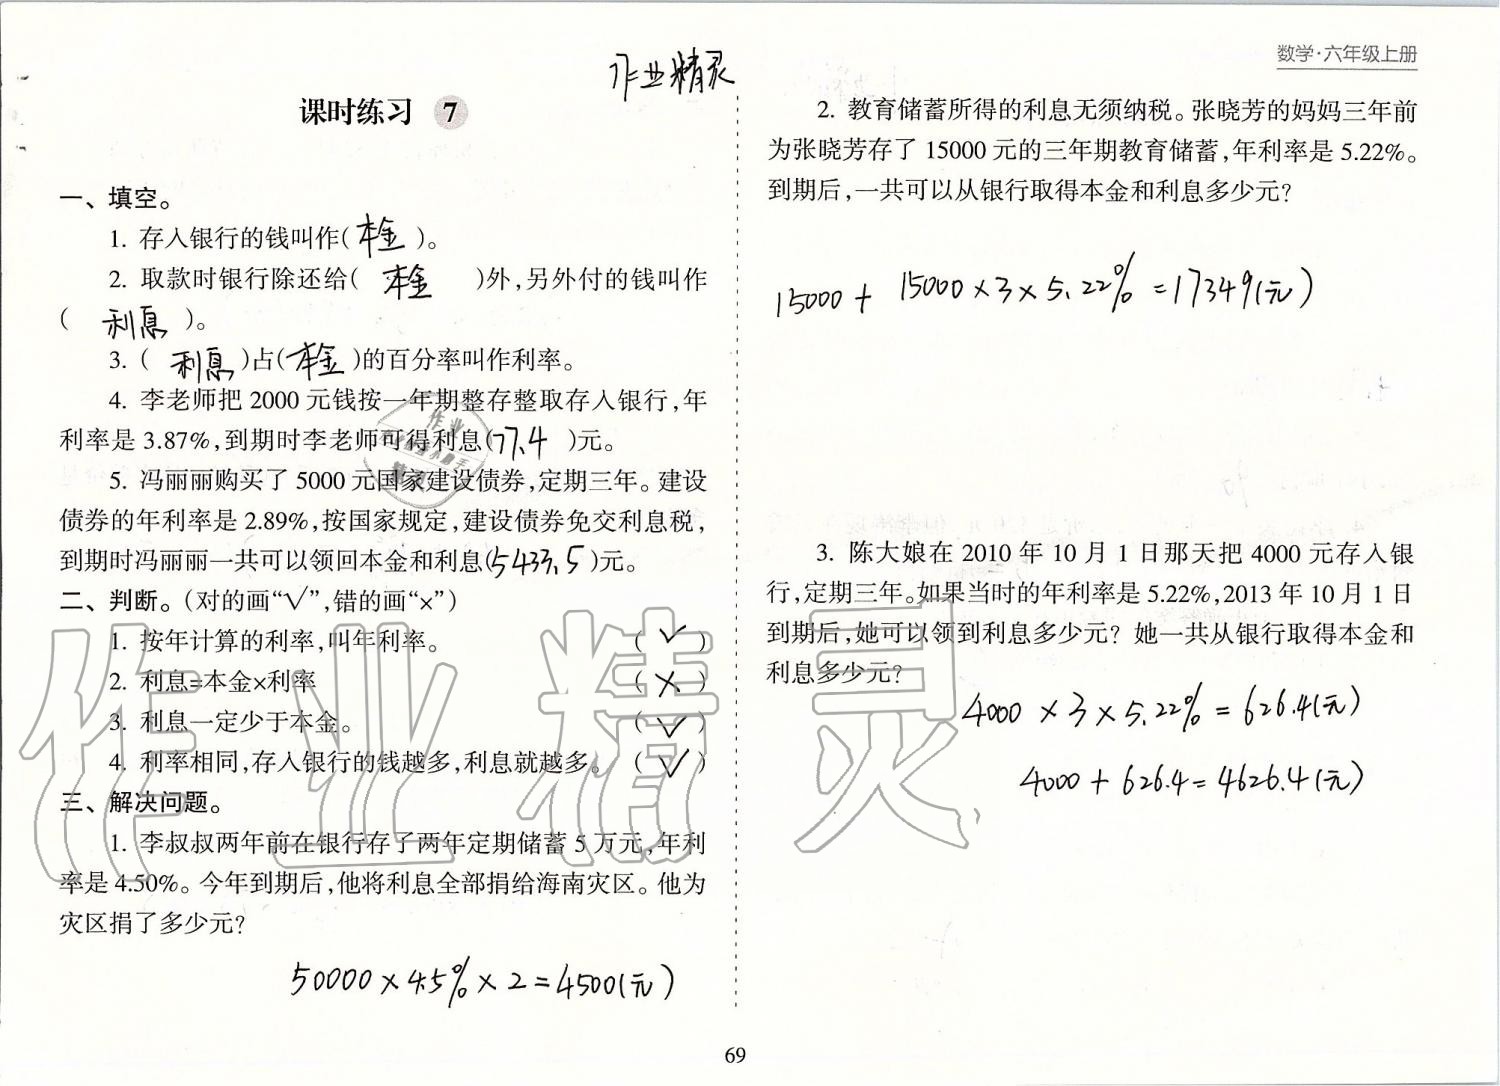 数学·六年级上册
作业精灵
课时练习 7
一、填空。
1. 存入银行的钱叫作( 本金 )。
2. 取款时银行除还给( 本金 )外,另外付的钱叫作
( 利息 )。
3. ( 利息 )占( 本金 )的百分率叫作利率。
4. 李老师把 2000 元钱按一年期整存整取存入银行,年
利率是 3.87%,到期时李老师可得利息(77.4 )元。
5. 冯丽丽购买了 5000 元国家建设债券,定期三年。建设
债券的年利率是 2.89%,按国家规定,建设债券免交利息税,
到期时冯丽丽一共可以领回本金和利息(5433.5)元。
二、判断。(对的画“√”,错的画“×”)
1. 按年计算的利率,叫年利率。 ( √ )
2. 利息=本金×利率 ( × )
3. 利息一定少于本金。 ( √ )
4. 利率相同,存入银行的钱越多,利息就越多。 ( √ )
三、解决问题。
1. 李叔叔两年前在银行存了两年定期储蓄 5 万元,年利
率是 4.50%。今年到期后,他将利息全部捐给海南灾区。他为
灾区捐了多少元?
50000×4.5%×2=4500(元)
2. 教育储蓄所得的利息无须纳税。张晓芳的妈妈三年前
为张晓芳存了 15000 元的三年期教育储蓄,年利率是 5.22%。
到期后,一共可以从银行取得本金和利息多少元?
15000+15000×3×5.22%=17349(元)
3. 陈大娘在 2010 年 10 月 1 日那天把 4000 元存入银
行,定期三年。如果当时的年利率是 5.22%,2013 年 10 月 1 日
到期后,她可以领到利息多少元? 她一共从银行取得本金和
利息多少元?
4000×3×5.22%=626.4(元)
4000+626.4=4626.4(元)
作业精灵
69